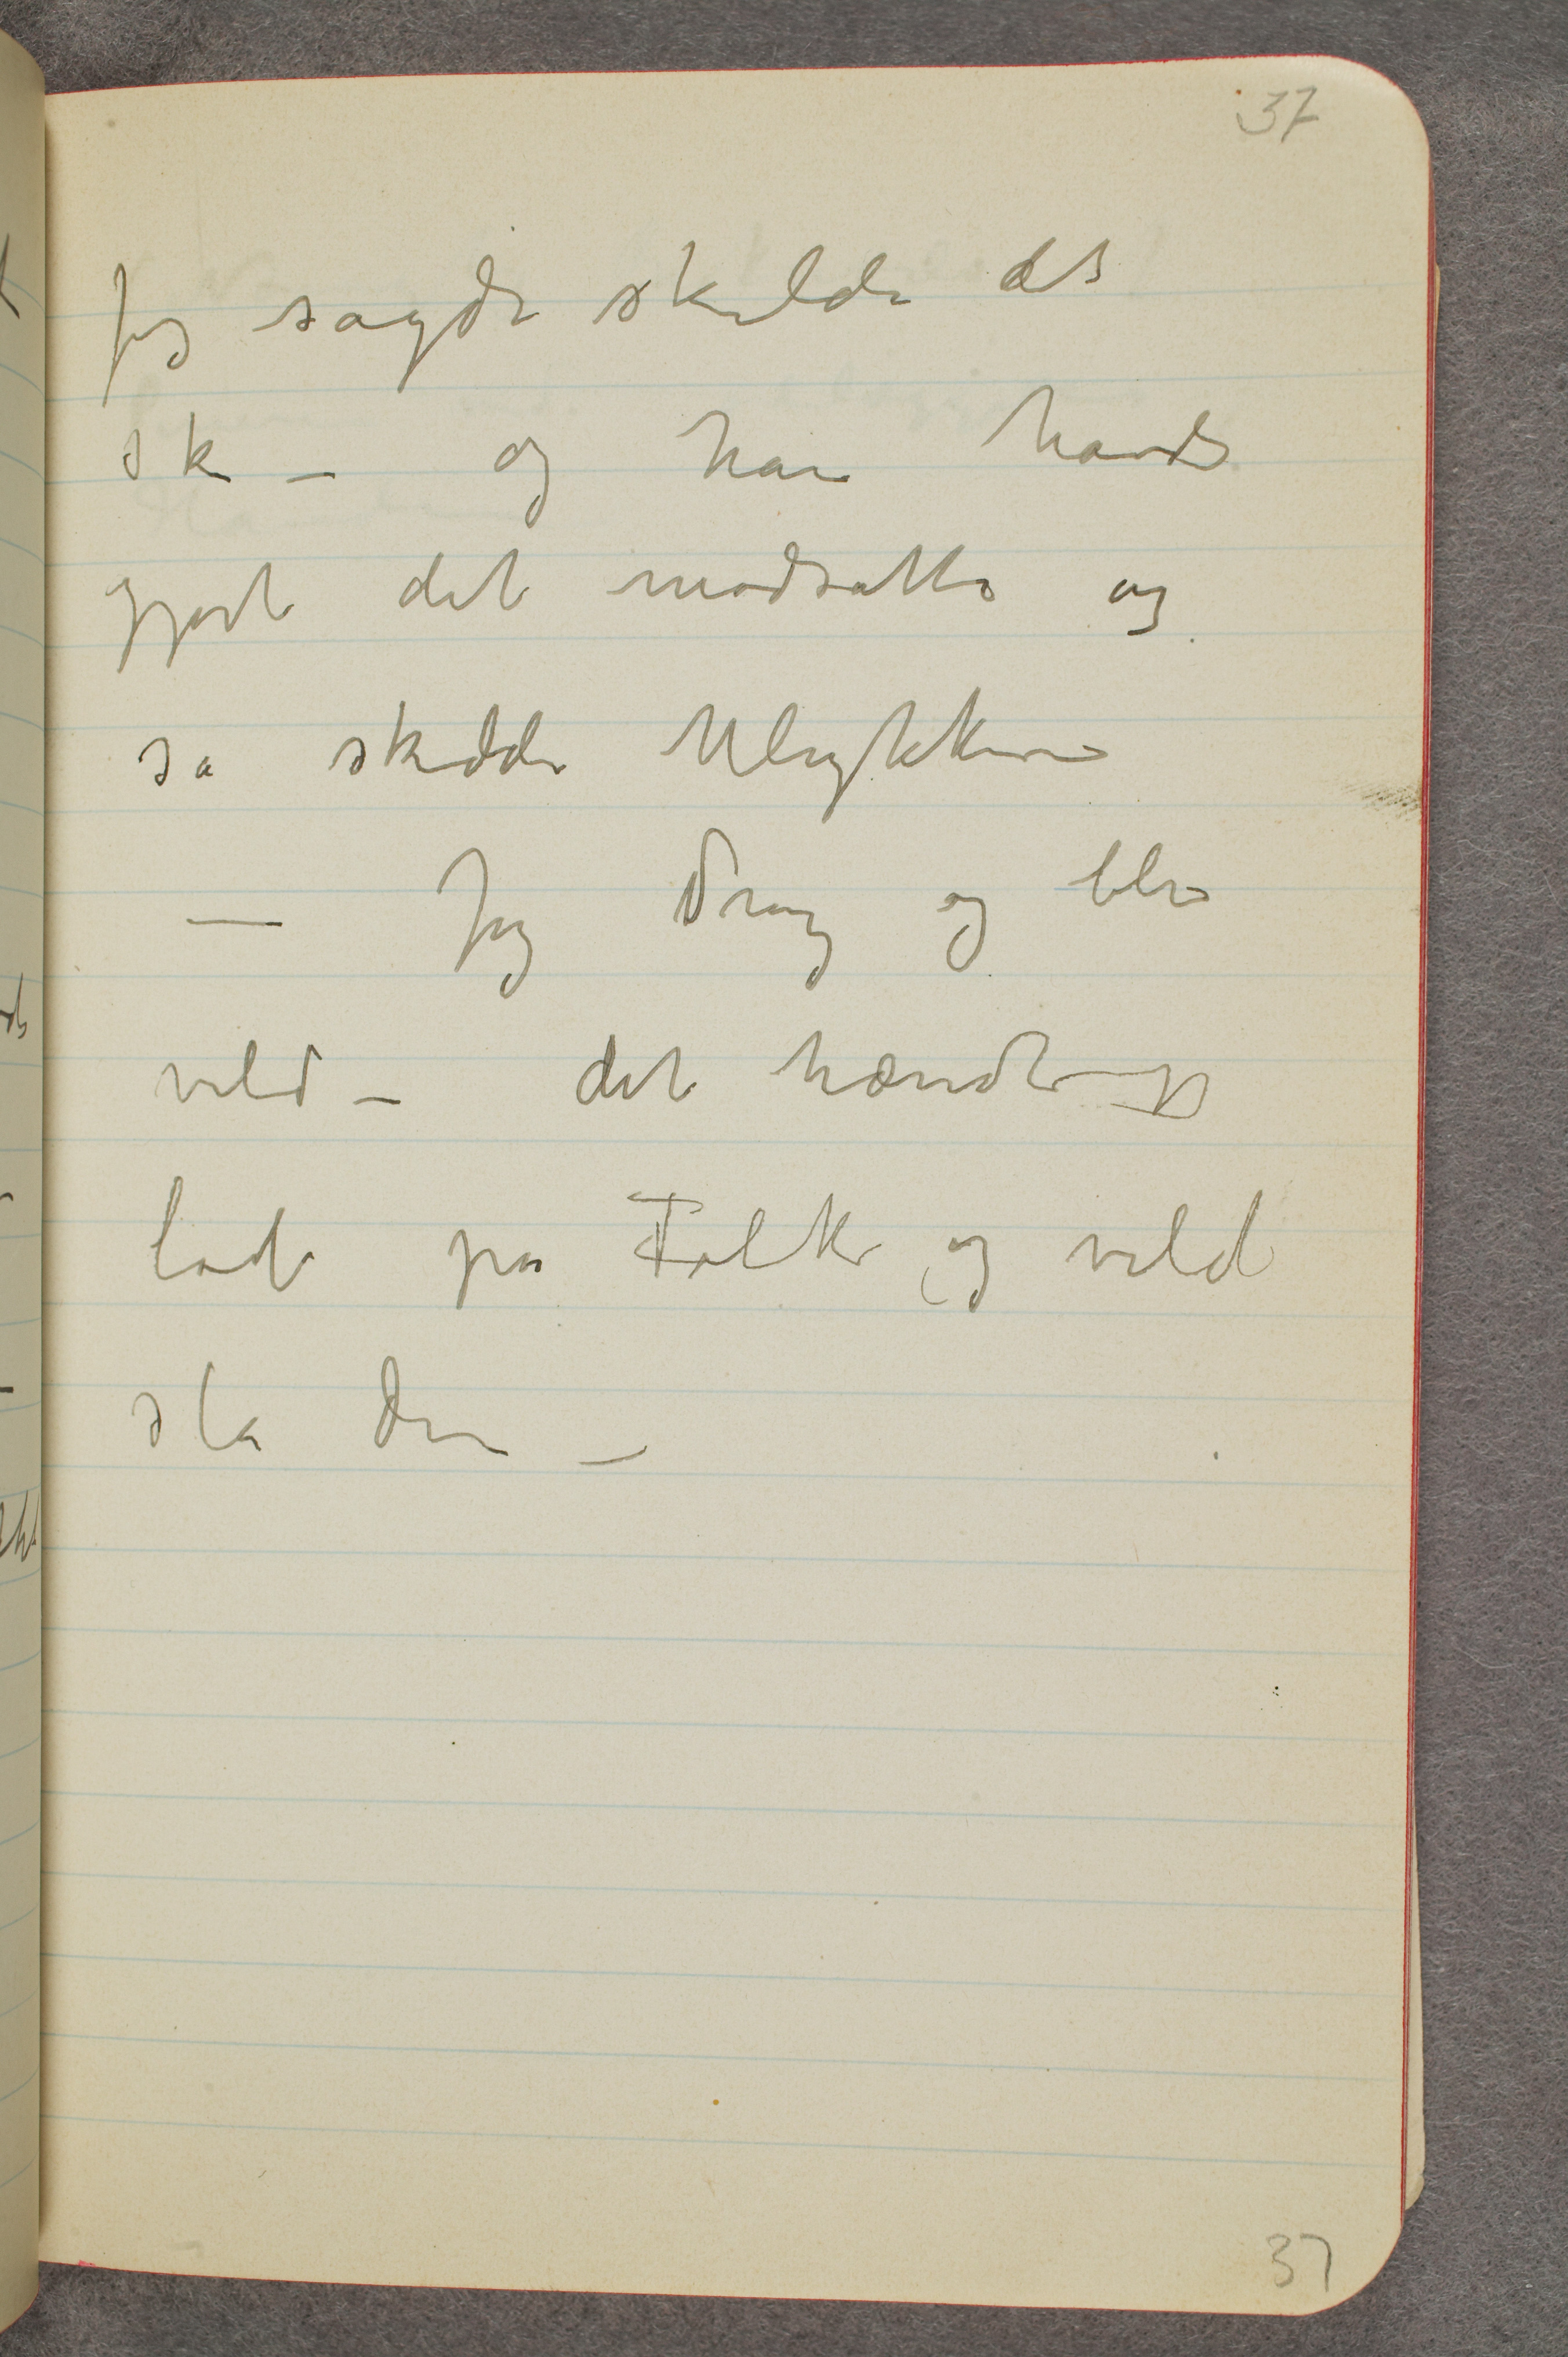 37
Jeg sagde skulde det
ske – og han havde
gjort det modsatte og
så skedde Ulykkerne
— Jeg drog og ble
vild – det hændte jeg
lodt på Folk og vild
slå dem –
37